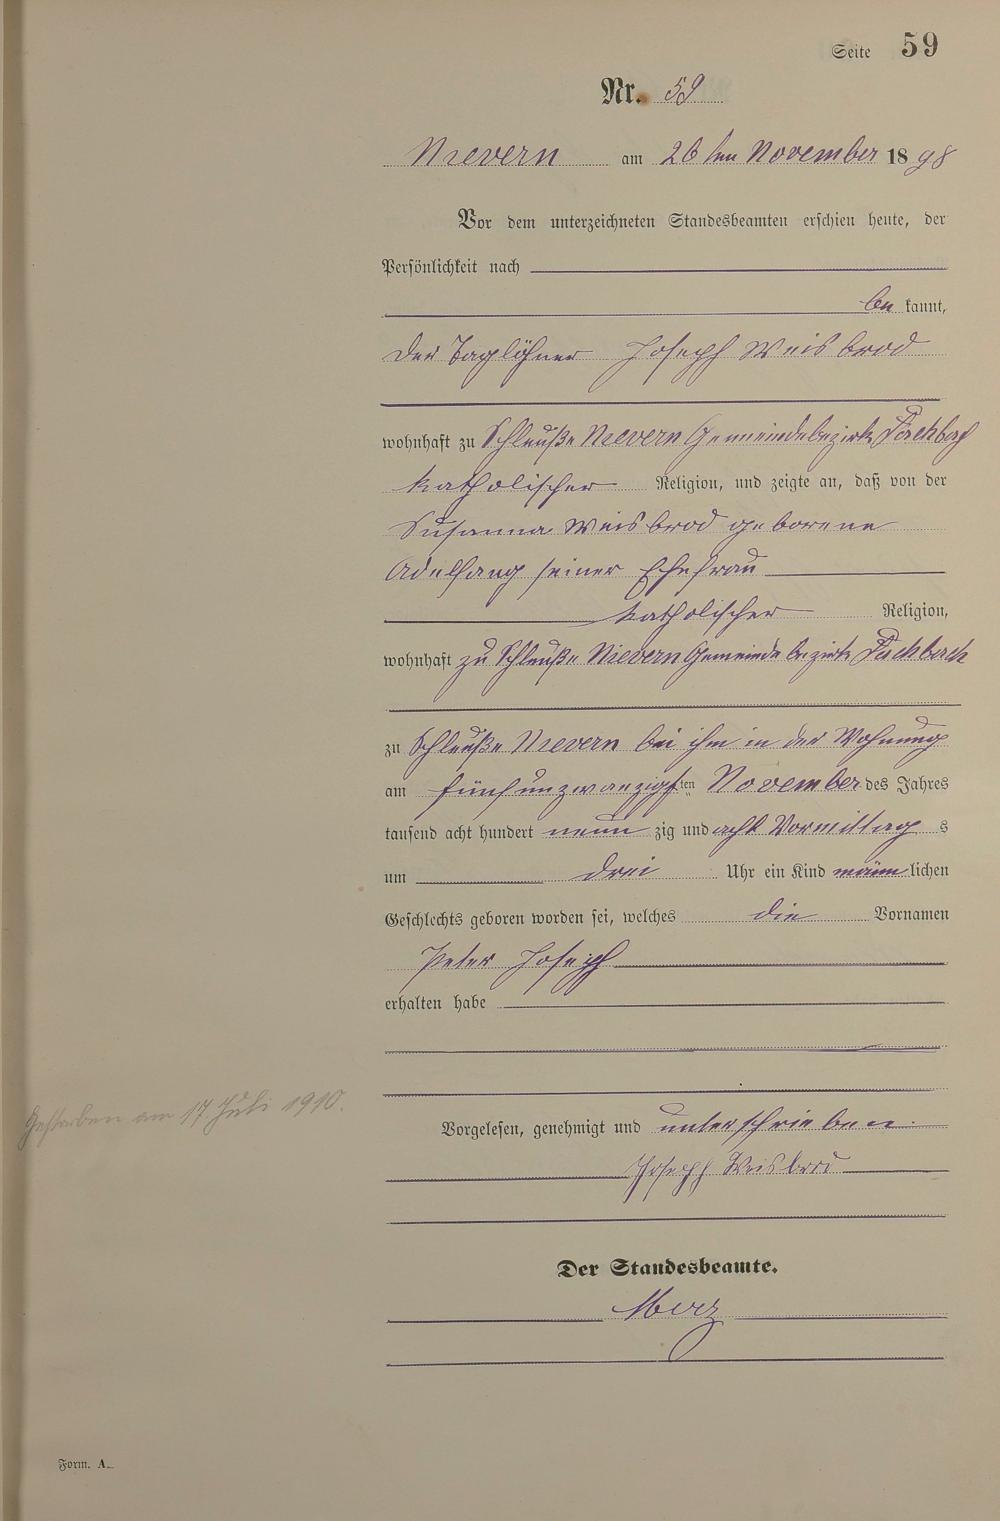 Seite 59
Nr. 59
Nievern am 26ten November 1898
Vor dem unterzeichneten Standesbeamten erschien heute, der
Persönlichkeit nach
be kannt,
der Taglöhner Joseph Weisbrod
wohnhaft zu Schleuße Nievern Gemeindebezirk Fachbach
katholischer Religion, und zeigte an, daß von der
Susanna Weisbrod geborene
Adelfang seiner Ehefrau
katholischer Religion,
wohnhaft zu Schleuße Nievern Gemeinde bezirk Fachbach
zu Schleuße Nievern bei ihm in der Wohnung
am fünfunzwanzigsten November des Jahres
tausend acht hundert neun zig und acht Vormittag s
um drei Uhr ein Kind männ lichen
Geschlechts geboren worden sei, welches die Vornamen
Peter Joseph
erhalten habe
Gestorben am 17. Juli 1910.
Vorgelesen, genehmigt und unterschrieben
Joseph Weisbrod
Der Standesbeamte.
Merz
Form. A.